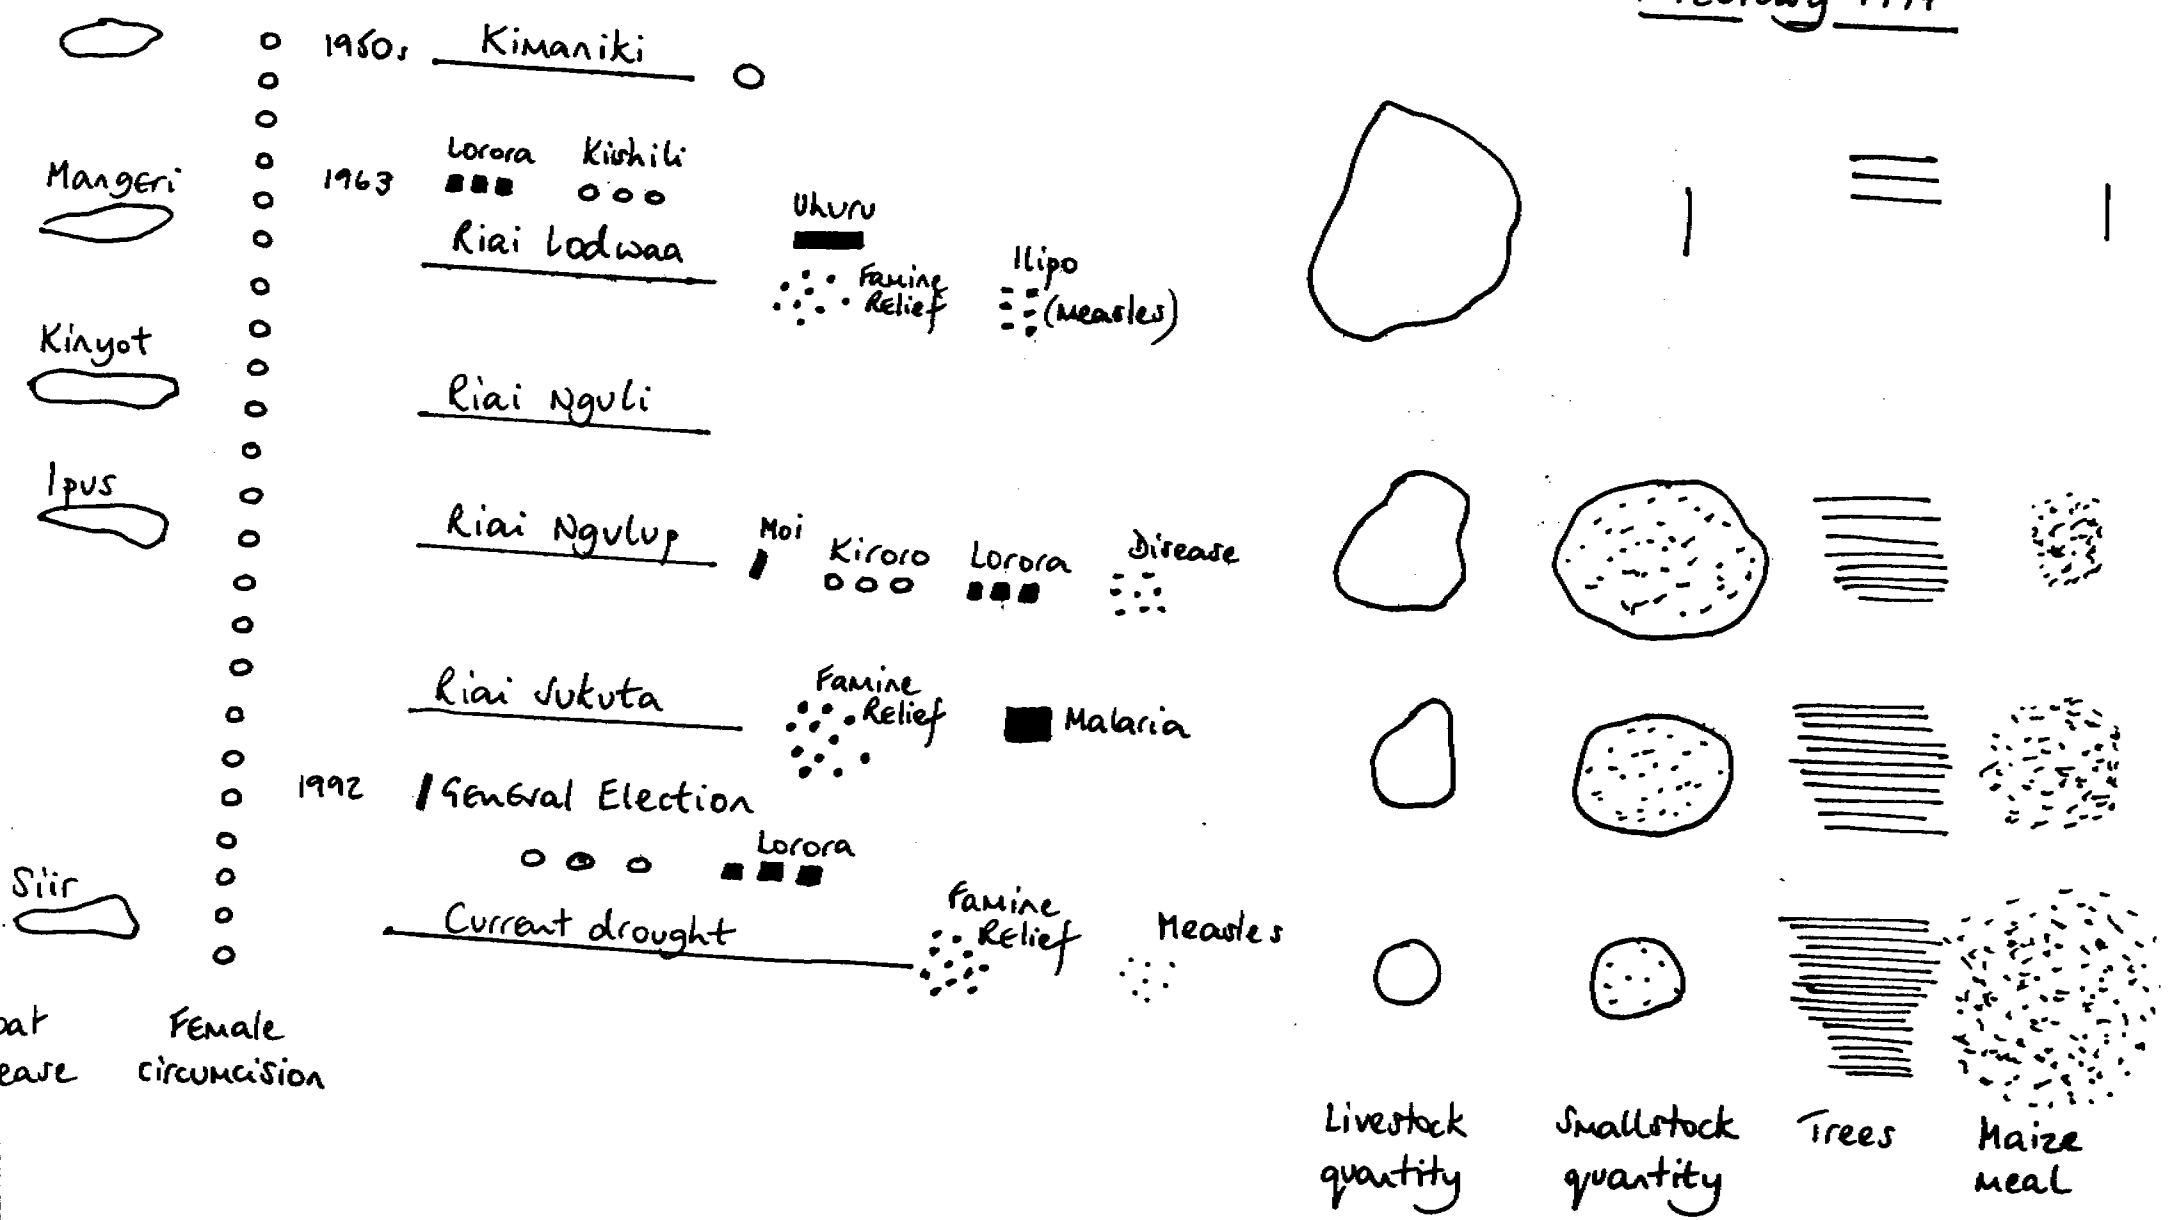 1950s Kimaniki
Mangeri
1963
Lorora Kishili
Uhuru
Riai Lodwaa
Famine
Relief
Ilipo
(Measles)
Kinyot
Riai Nguli
Ipus
Riai Ngulup
Moi
Kiroro
Lorora
Disease
Riai Sukuta
Famine
Relief
Malaria
1992 General Election
Lorora
Siir
Current drought
Famine
Relief
Measles
Female
circumcision
Livestock
quantity
Smallstock
quantity
Trees
Maize
meal